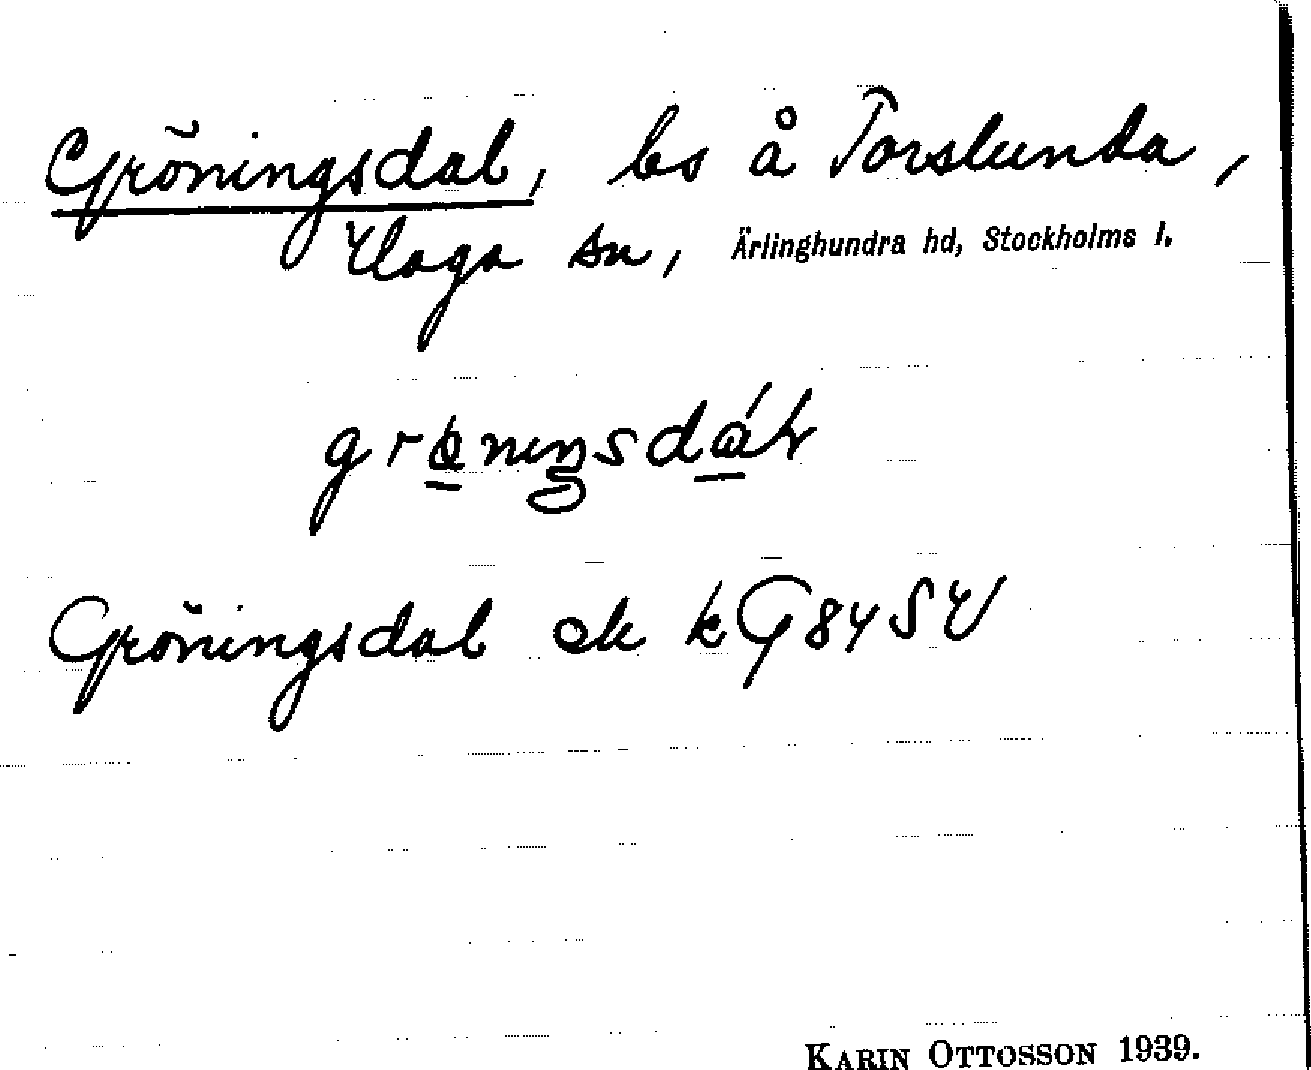 Gröningsdal, bs å Torslunda,
Haga sn, Ärlinghundra hd, Stockholms l.
Gröningsdal ek kG84SV
KARIN OTTOSSON 1939.